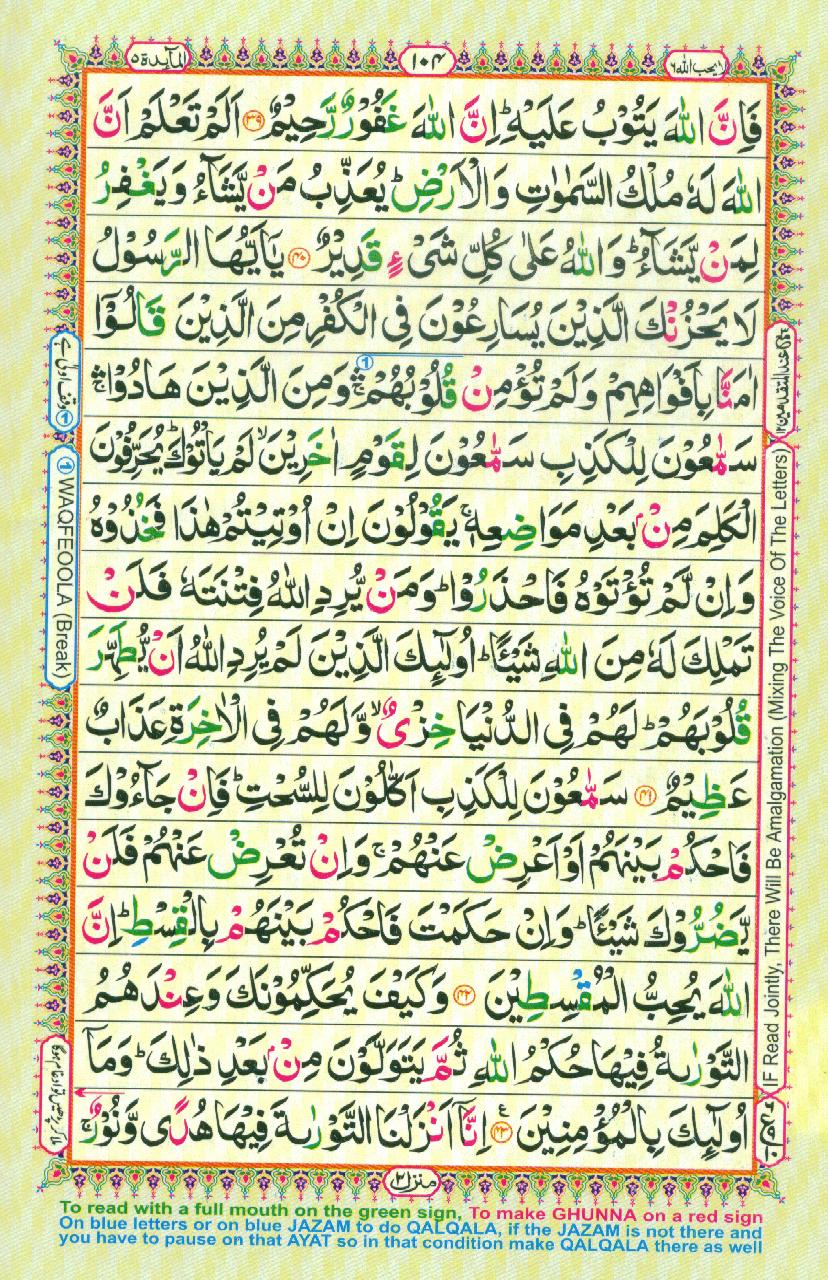 المآئدة ۵
۱۰۴
لا یحب الله ۶
فَاِنَّ اللّٰهَ یَتُوْبُ عَلَیْهِ ؕ اِنَّ اللّٰهَ غَفُوْرٌ رَّحِیْمٌ ۝۳۹ اَلَمْ تَعْلَمْ اَنَّ
اللّٰهَ لَهٗ مُلْكُ السَّمٰوٰتِ وَالْاَرْضِ ؕ یُعَذِّبُ مَنْ یَّشَآءُ وَیَغْفِرُ
لِمَنْ یَّشَآءُ ؕ وَاللّٰهُ عَلٰی كُلِّ شَیْءٍ قَدِیْرٌ ۝۴۰ یٰۤاَیُّهَا الرَّسُوْلُ
لَا یَحْزُنْكَ الَّذِیْنَ یُسَارِعُوْنَ فِی الْكُفْرِ مِنَ الَّذِیْنَ قَالُوْۤا
اٰمَنَّا بِاَفْوَاهِهِمْ وَلَمْ تُؤْمِنْ قُلُوْبُهُمْ ۛۚ وَمِنَ الَّذِیْنَ هَادُوْا ۛۚ
سَمّٰعُوْنَ لِلْكَذِبِ سَمّٰعُوْنَ لِقَوْمٍ اٰخَرِیْنَ ۙ لَمْ یَاْتُوْكَ ؕ یُحَرِّفُوْنَ
الْكَلِمَ مِنْۢ بَعْدِ مَوَاضِعِهٖ ۚ یَقُوْلُوْنَ اِنْ اُوْتِیْتُمْ هٰذَا فَخُذُوْهُ
وَاِنْ لَّمْ تُؤْتَوْهُ فَاحْذَرُوْا ؕ وَمَنْ یُّرِدِ اللّٰهُ فِتْنَتَهٗ فَلَنْ
تَمْلِكَ لَهٗ مِنَ اللّٰهِ شَیْـًٔا ؕ اُولٰٓىِٕكَ الَّذِیْنَ لَمْ یُرِدِ اللّٰهُ اَنْ یُّطَهِّرَ
قُلُوْبَهُمْ ؕ لَهُمْ فِی الدُّنْیَا خِزْیٌ ۙ وَّلَهُمْ فِی الْاٰخِرَةِ عَذَابٌ
عَظِیْمٌ ۝۴۱ سَمّٰعُوْنَ لِلْكَذِبِ اَكّٰلُوْنَ لِلسُّحْتِ ؕ فَاِنْ جَآءُوْكَ
فَاحْكُمْ بَیْنَهُمْ اَوْ اَعْرِضْ عَنْهُمْ ۚ وَاِنْ تُعْرِضْ عَنْهُمْ فَلَنْ
یَّضُرُّوْكَ شَیْـًٔا ؕ وَاِنْ حَكَمْتَ فَاحْكُمْ بَیْنَهُمْ بِالْقِسْطِ ؕ اِنَّ
اللّٰهَ یُحِبُّ الْمُقْسِطِیْنَ ۝۴۲ وَكَیْفَ یُحَكِّمُوْنَكَ وَعِنْدَهُمُ
التَّوْرٰىةُ فِیْهَا حُكْمُ اللّٰهِ ثُمَّ یَتَوَلَّوْنَ مِنْۢ بَعْدِ ذٰلِكَ ؕ وَمَاۤ
اُولٰٓىِٕكَ بِالْمُؤْمِنِیْنَ ۝۴۳ اِنَّاۤ اَنْزَلْنَا التَّوْرٰىةَ فِیْهَا هُدًی وَّنُوْرٌ ۚ
منزل ۲
① وقف اولی ہے
① WAQFEOOLA (Break)
ملا کر پڑھیں تو ادغام ہوگا
IF Read Jointly, There Will Be Amalgamation (Mixing The Voice Of The Letters)
To read with a full mouth on the green sign, To make GHUNNA on a red sign
On blue letters or on blue JAZAM to do QALQALA, if the JAZAM is not there and
you have to pause on that AYAT so in that condition make QALQALA there as well